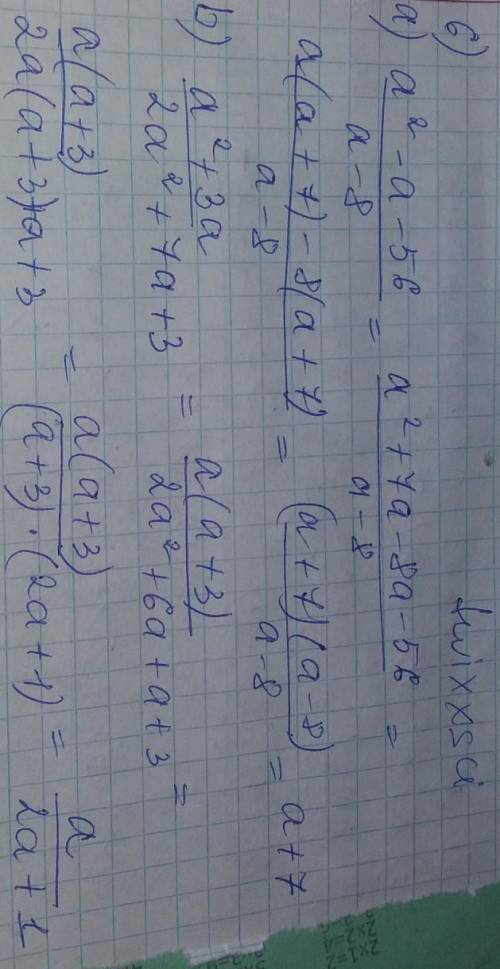 6) twixxsa
a) a² - a - 56 / a - 8 = a² + 7a - 8a - 56 / a - 8 =
a(a + 7) - 8(a + 7) / a - 8 = (a + 7)(a - 8) / a - 8 = a + 7
b) a² + 3a / 2a² + 7a + 3 = a(a + 3) / 2a² + 6a + a + 3 =
a(a + 3) / 2a(a + 3)+a + 3 = a(a + 3) / (a + 3) · (2a + 1) = a / 2a + 1
2×1=2
2×2=4